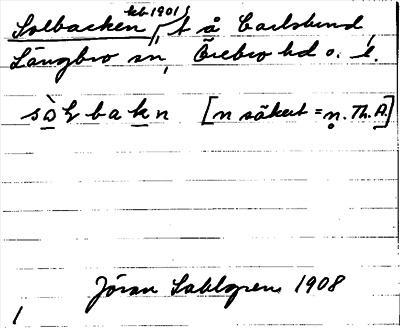 Solbacken, kb 1901, t å Carlslund,
Längbro sn, Örebro hd o. l.
sòlbakn [n säkert = n. Th. A.]
Jöran Sahlgren 1908
1